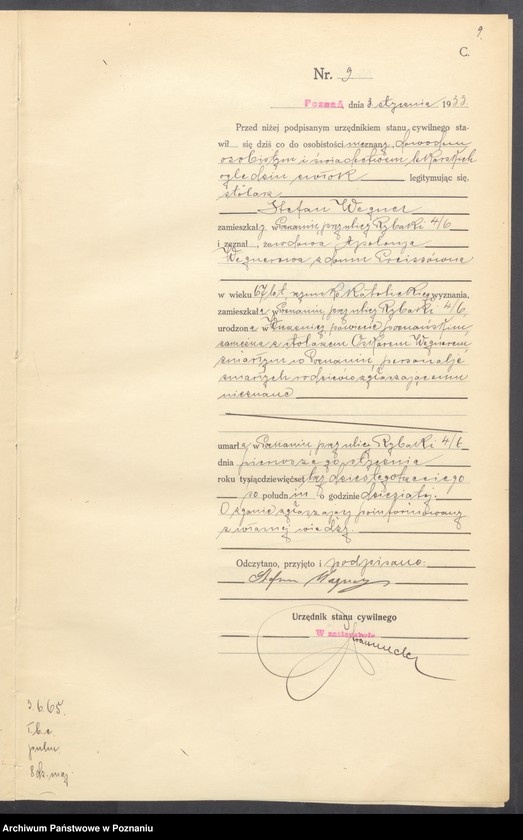 9.
C.
Nr. 9
Poznań, dnia 3 stycznia 1933
Przed niżej podpisanym urzędnikiem stanu cywilnego sta-
wił się dziś co do osobistości nieznany, dowodem
osobistym i świadectwem lekarskich
oględzin zwłok legitymując się,
stolarz
Stefan Wegner
zamieszkały w Poznaniu, przy ulicy Rybaki 4/6
i zeznał, że wdowa Apolonja
Wegnerowa z domu
w wieku 67 lat, rzymsko katolickiego wyznania,
zamieszkała w Poznaniu, przy ulicy Rybaki 4/6,
urodzona w powiecie poznańskim,
zamężna z stolarzem Oskarem Wegnerem
zmarłym w Poznaniu, personalja
zmarłych rodziców zgłaszającemu
nieznane
umarła w Poznaniu, przy ulicy Rybaki 4/6
dnia pierwszego stycznia
roku tysiącdziewięćset trzydziestego trzeciego
po południu o godzinie dziesiątej.
O zgonie zgłaszający poinformowany
z własnej wiedzy.
Odczytano, przyjęto i podpisano:
Stefan Wegner
Urzędnik stanu cywilnego
W zastępstwie
3.6.65.
Archiwum Państwowe w Poznaniu